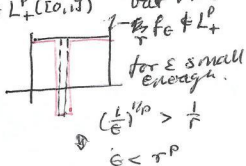 L₊ᵖ([0,1])
1 - \frac{ε}{r} f_ε ∉ L₊ᵖ
for ε small
enough.
(\frac{1}{ε})^{1/p} > \frac{1}{r}
ε < rᵖ